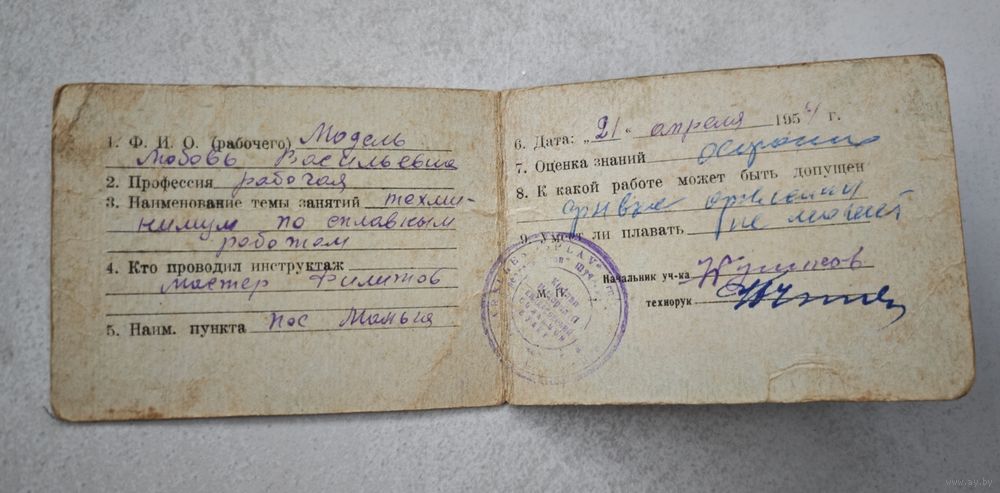 1. Ф. И. О. (рабочего) Модель
Любовь Васильевна
2. Профессия рабочая
3. Наименование темы занятий техми-
нимум по сплавным
работам
4. Кто проводил инструктаж
мастер Филипов
5. Наим. пункта пос Манья
6. Дата: „21“ апреля 1954 г.
7. Оценка знаний
8. К какой работе может быть допущен
9. Умеет ли плавать не может
Начальник уч-ка
М. П.
технорук
www.ay.by